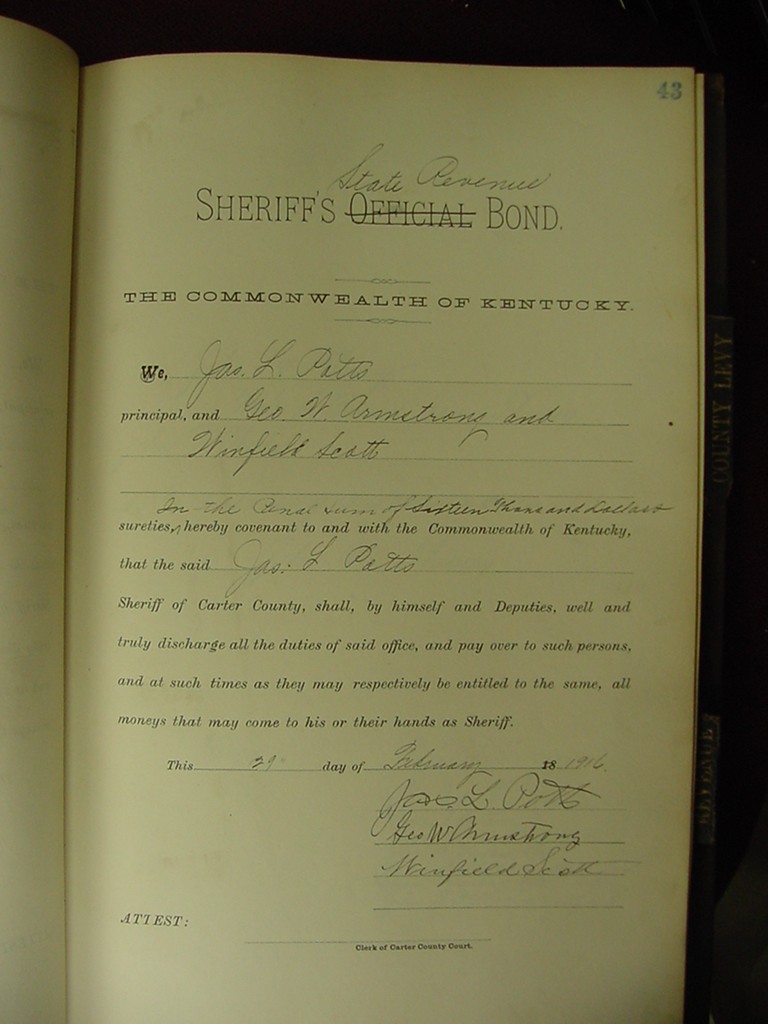 43
State Revenue
SHERIFF'S OFFICIAL BOND.
THE COMMONWEALTH OF KENTUCKY.
We, Jas. L. Potts
principal, and Geo W. Armstrong and
Winfield Scott
In the Penal sum of Sixteen Thousand Dollars
sureties, hereby covenant to and with the Commonwealth of Kentucky,
that the said Jas. L Potts
Sheriff of Carter County, shall, by himself and Deputies, well and
truly discharge all the duties of said office, and pay over to such persons,
and at such times as they may respectively be entitled to the same, all
moneys that may come to his or their hands as Sheriff.
This 29 day of February 18 1916.
Jas. L. Potts
Geo W Armstrong
Winfield Scott
ATTEST:
Clerk of Carter County Court.
COUNTY LEVY
REVENUE